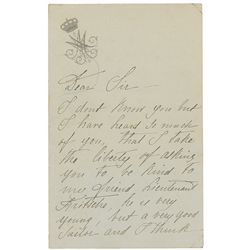 Dear Sir
I don't know you but
I have heard so much
of you, that I take
the liberty of asking
you to be kind to
my friend Lieutenant
he is very
young, but a very good
Sailor and I think